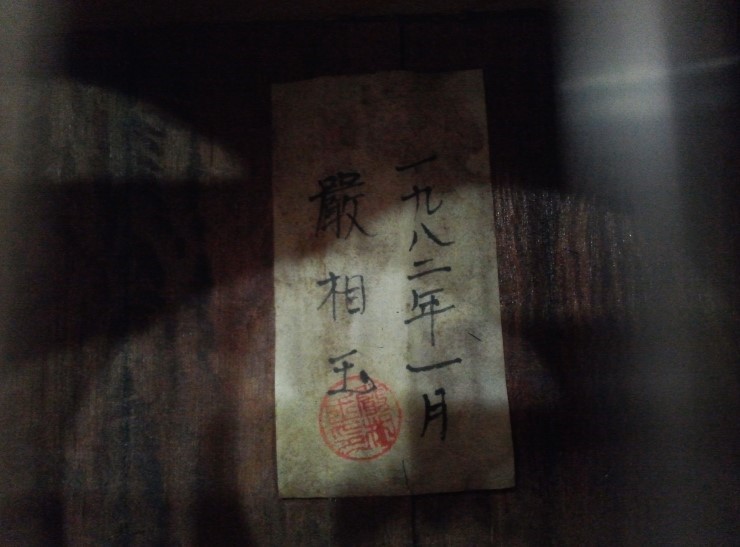 一九八二年一月
嚴相玉